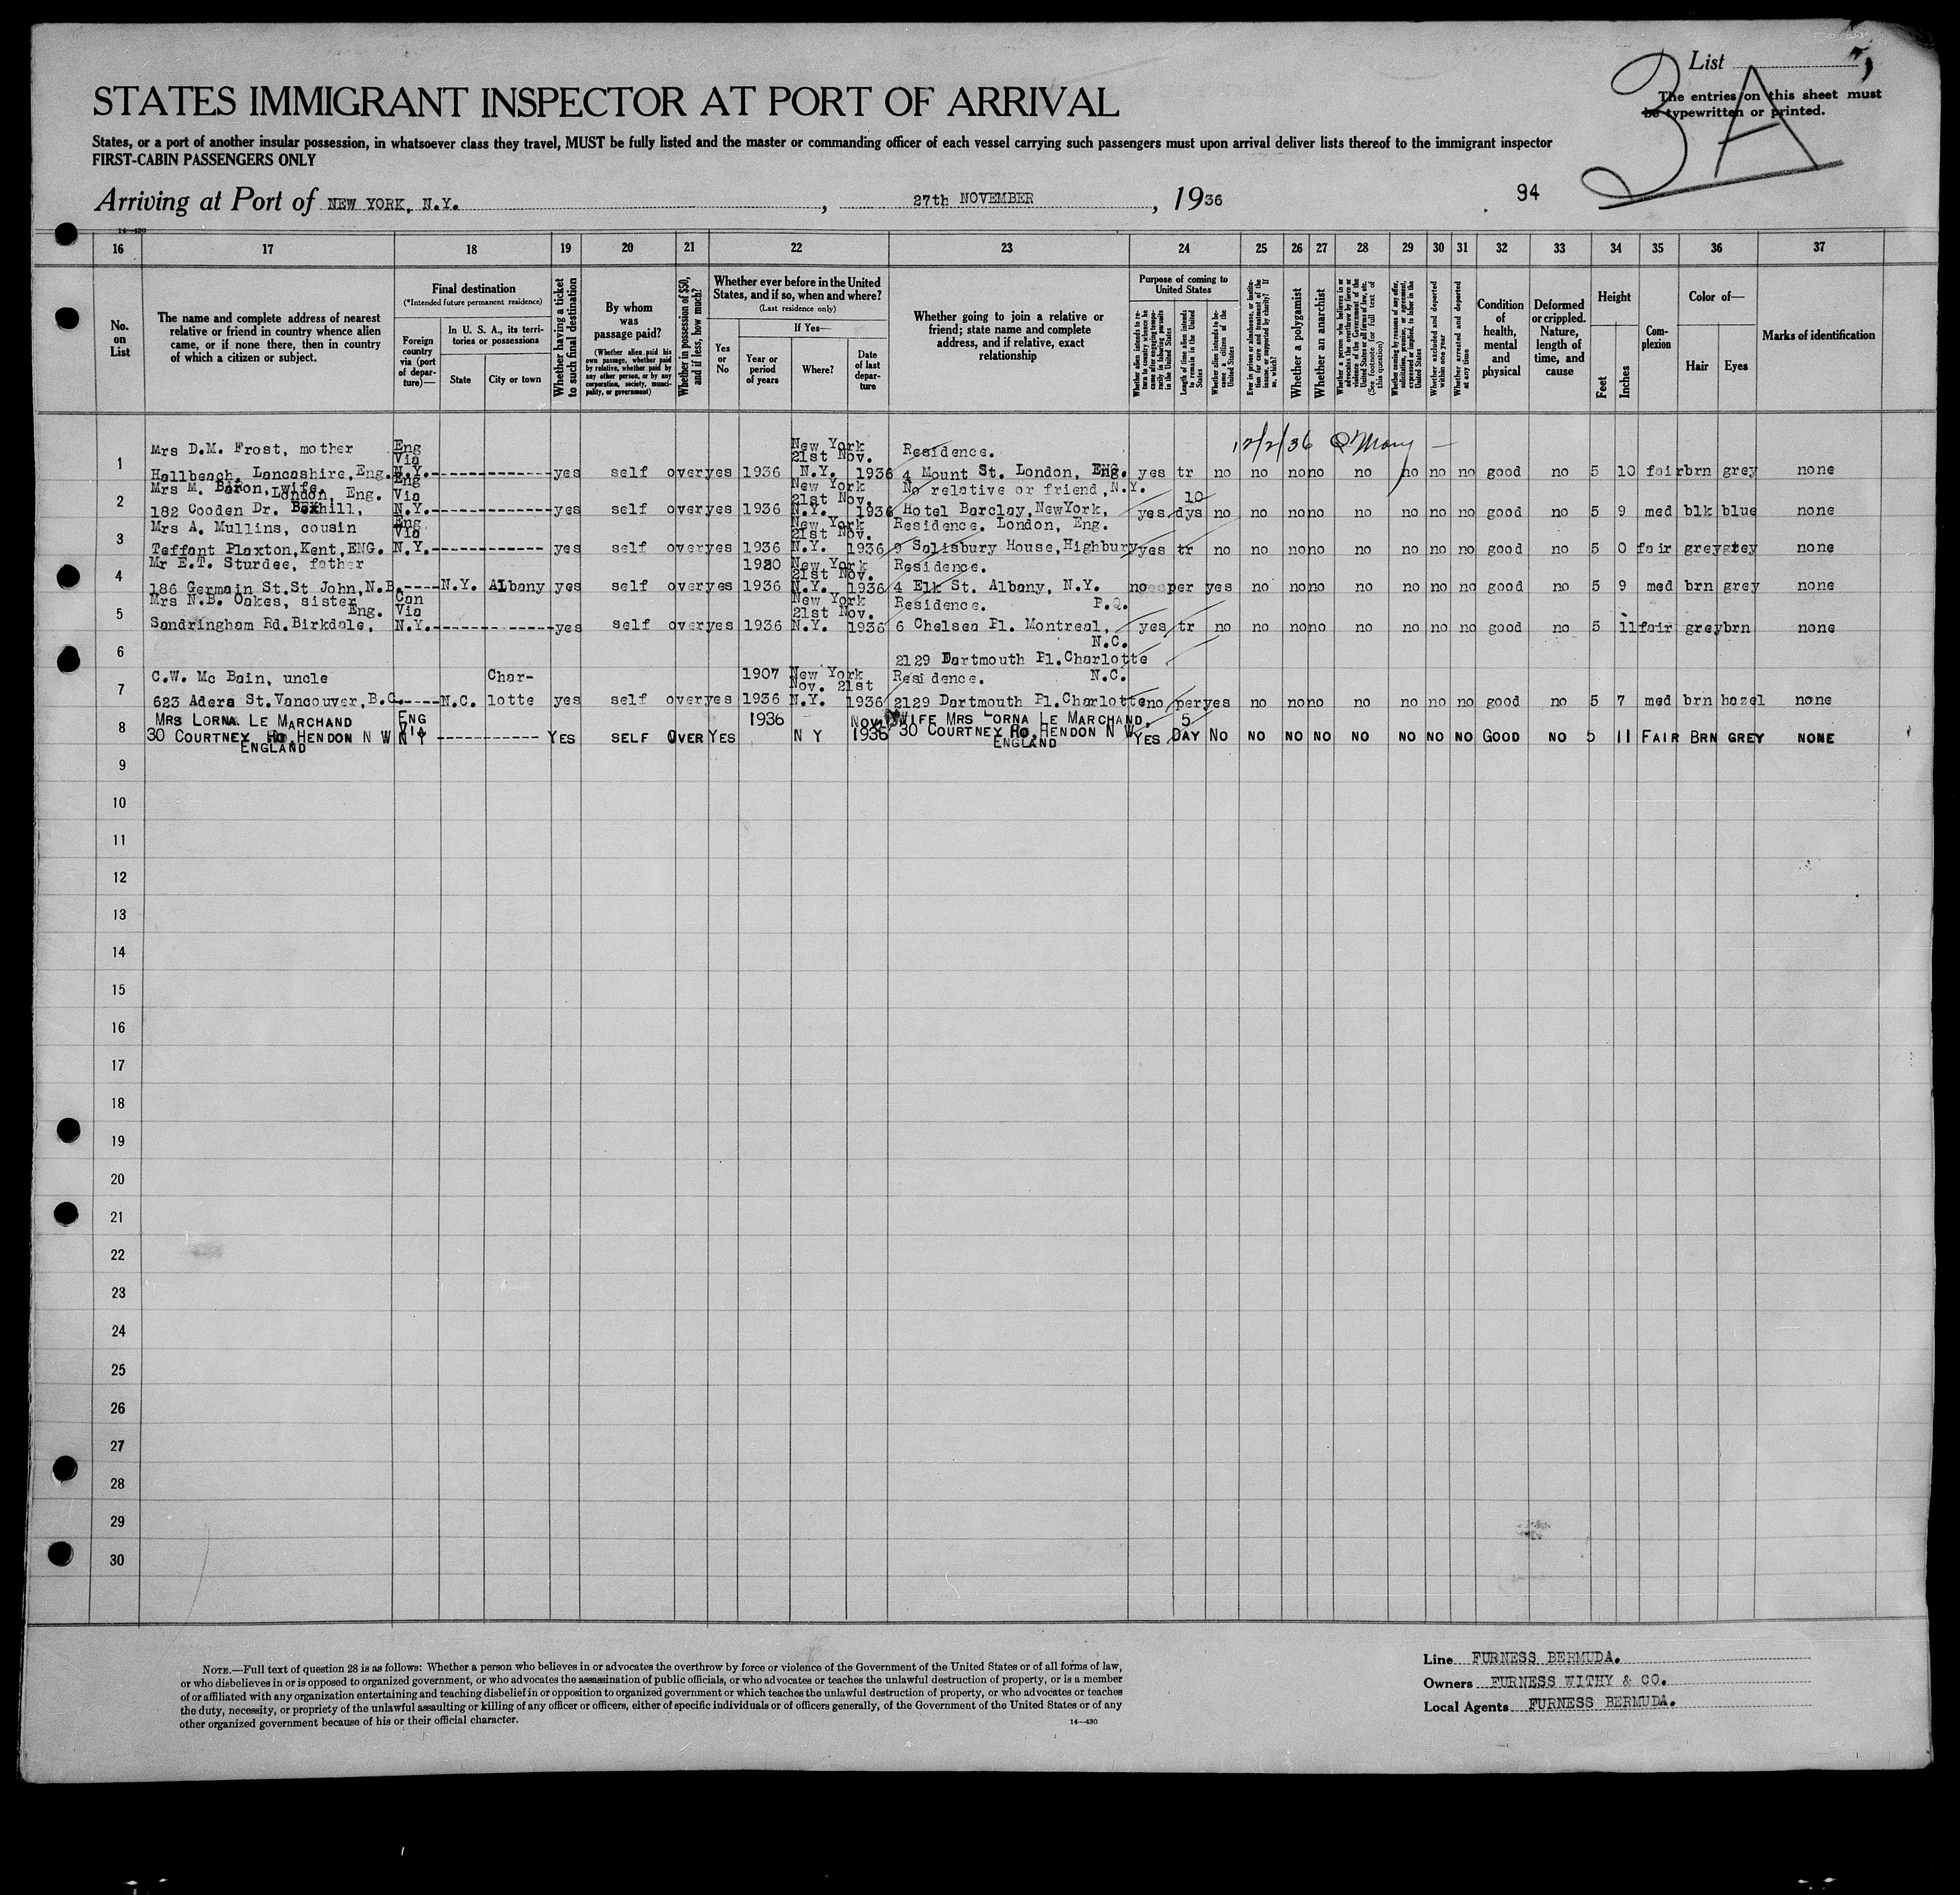 List
3A
The entries on this sheet must
be typewritten or printed.
STATES IMMIGRANT INSPECTOR AT PORT OF ARRIVAL
States, or a port of another insular possession, in whatsoever class they travel, MUST be fully listed and the master or commanding officer of each vessel carrying such passengers must upon arrival deliver lists thereof to the immigrant inspector
FIRST-CABIN PASSENGERS ONLY
Arriving at Port of NEW YORK, N.Y. , 27th NOVEMBER , 1936
94
14—430
16 17 18 19 20 21 22 23 24 25 26 27 28 29 30 31 32 33 34 35 36 37
No. on List
The name and complete address of nearest relative or friend in country whence alien came, or if none there, then in country of which a citizen or subject.
Final destination
(*Intended future permanent residence)
Foreign country via (port of departure)—
In U. S. A., its territories or possessions
State
City or town
Whether having a ticket to such final destination
By whom was passage paid?
(Whether alien paid his own passage, whether paid by relative, whether paid by any other person, or by any corporation, society, municipality, or government)
Whether in possession of $50, and if less, how much?
Whether ever before in the United States, and if so, when and where?
(Last residence only)
Yes or No
If Yes—
Year or period of years
Where?
Date of last departure
Whether going to join a relative or friend; state name and complete address, and if relative, exact relationship
Purpose of coming to United States
Whether alien intends to return to country whence he came after engaging temporarily in laboring pursuits in the United States
Length of time alien intends to remain in the United States
Whether alien intends to become a citizen of the United States
Ever in prison or almshouse, or institution for care and treatment of the insane, or supported by charity? If so, which?
Whether a polygamist
Whether an anarchist
Whether a person who believes in or advocates the overthrow by force or violence of the Government of the United States or all forms of law, etc. (See footnote for full text of this question)
Whether coming by reasons of any offer, solicitation, promise, or agreement, expressed or implied, to labor in the United States
Whether excluded and deported within one year
Whether arrested and deported at any time
Condition of health, mental and physical
Deformed or crippled. Nature, length of time, and cause
Height
Feet
Inches
Complexion
Color of—
Hair
Eyes
Marks of identification
12/2/36 Q Mary —
1 Mrs D.M. Frost, mother Eng Via New York 21st Nov. Residence.
Hallbeach, Lancashire, Eng. N.Y. yes self over yes 1936 N.Y. 1936 4 Mount St. London, ENG. yes tr no no no no no no no no good no 5 10 fair brn grey none
2 Mrs M. Baron, wife London, Eng. Eng Via New York 21st Nov. No relative or friend, N.Y. 10
182 Cooden Dr. Bexhill, N.Y. yes self over yes 1936 N.Y. 1936 Hotel Barclay, NewYork, yes dys no no no no no no no no good no 5 9 med blk blue none
3 Mrs A. Mullins, cousin Eng Via New York 21st Nov. Residence. London, Eng.
Teffant Plaxton, Kent, ENG. N.Y. yes self over yes 1936 N.Y. 1936 9 Salisbury House, Highbury yes tr no no no no no no no no good no 5 0 fair grey grey none
4 Mr E.T. Sturdee, father 1920 New York 21st Nov. Residence.
186 Germain St. St John, N.B. N.Y. Albany yes self over yes 1936 N.Y. 1936 4 Elk St. Albany, N.Y. no per yes no no no no no no no good no 5 9 med brn grey none
5 Mrs N.B. Oakes, sister Eng. Can Via New York 21st Nov. Residence. P.Q.
Sandringham Rd. Birkdale, N.Y. yes self over yes 1936 N.Y. 1936 6 Chelsea Pl. Montreal, yes tr no no no no no no no no good no 5 11 fair grey brn none
6 N.C.
2129 Dartmouth Pl. Charlotte
7 C.W. Mc Bain, uncle Char- 1907 New York Nov. 21st Residence. N.C.
623 Adera St. Vancouver, B.C. N.C. lotte yes self over yes 1936 N.Y. 1936 2129 Dartmouth Pl. Charlotte no per yes no no no no no no no good no 5 7 med brn hazel none
8 MRS LORNA LE MARCHAND ENG VIA 1936 NOV. WIFE MRS LORNA LE MARCHAND, 5
30 COURTNEY RD, HENDON N W N Y YES SELF OVER YES N Y 1936 30 COURTNEY RD, HENDON N W YES DAY NO NO NO NO NO NO NO NO GOOD NO 5 11 FAIR BRN GREY NONE
ENGLAND ENGLAND
9
10
11
12
13
14
15
16
17
18
19
20
21
22
23
24
25
26
27
28
29
30
NOTE.—Full text of question 28 is as follows: Whether a person who believes in or advocates the overthrow by force or violence of the Government of the United States or of all forms of law,
or who disbelieves in or is opposed to organized government, or who advocates the assassination of public officials, or who advocates or teaches the unlawful destruction of property, or is a member
of or affiliated with any organization entertaining and teaching disbelief in or opposition to organized government or which teaches the unlawful destruction of property, or who advocates or teaches
the duty, necessity, or propriety of the unlawful assaulting or killing of any officer or officers, either of specific individuals or of officers generally, of the Government of the United States or of any
other organized government because of his or their official character.
14—430
Line FURNESS BERMUDA.
Owners FURNESS WITHY & CO.
Local Agents FURNESS BERMUDA.